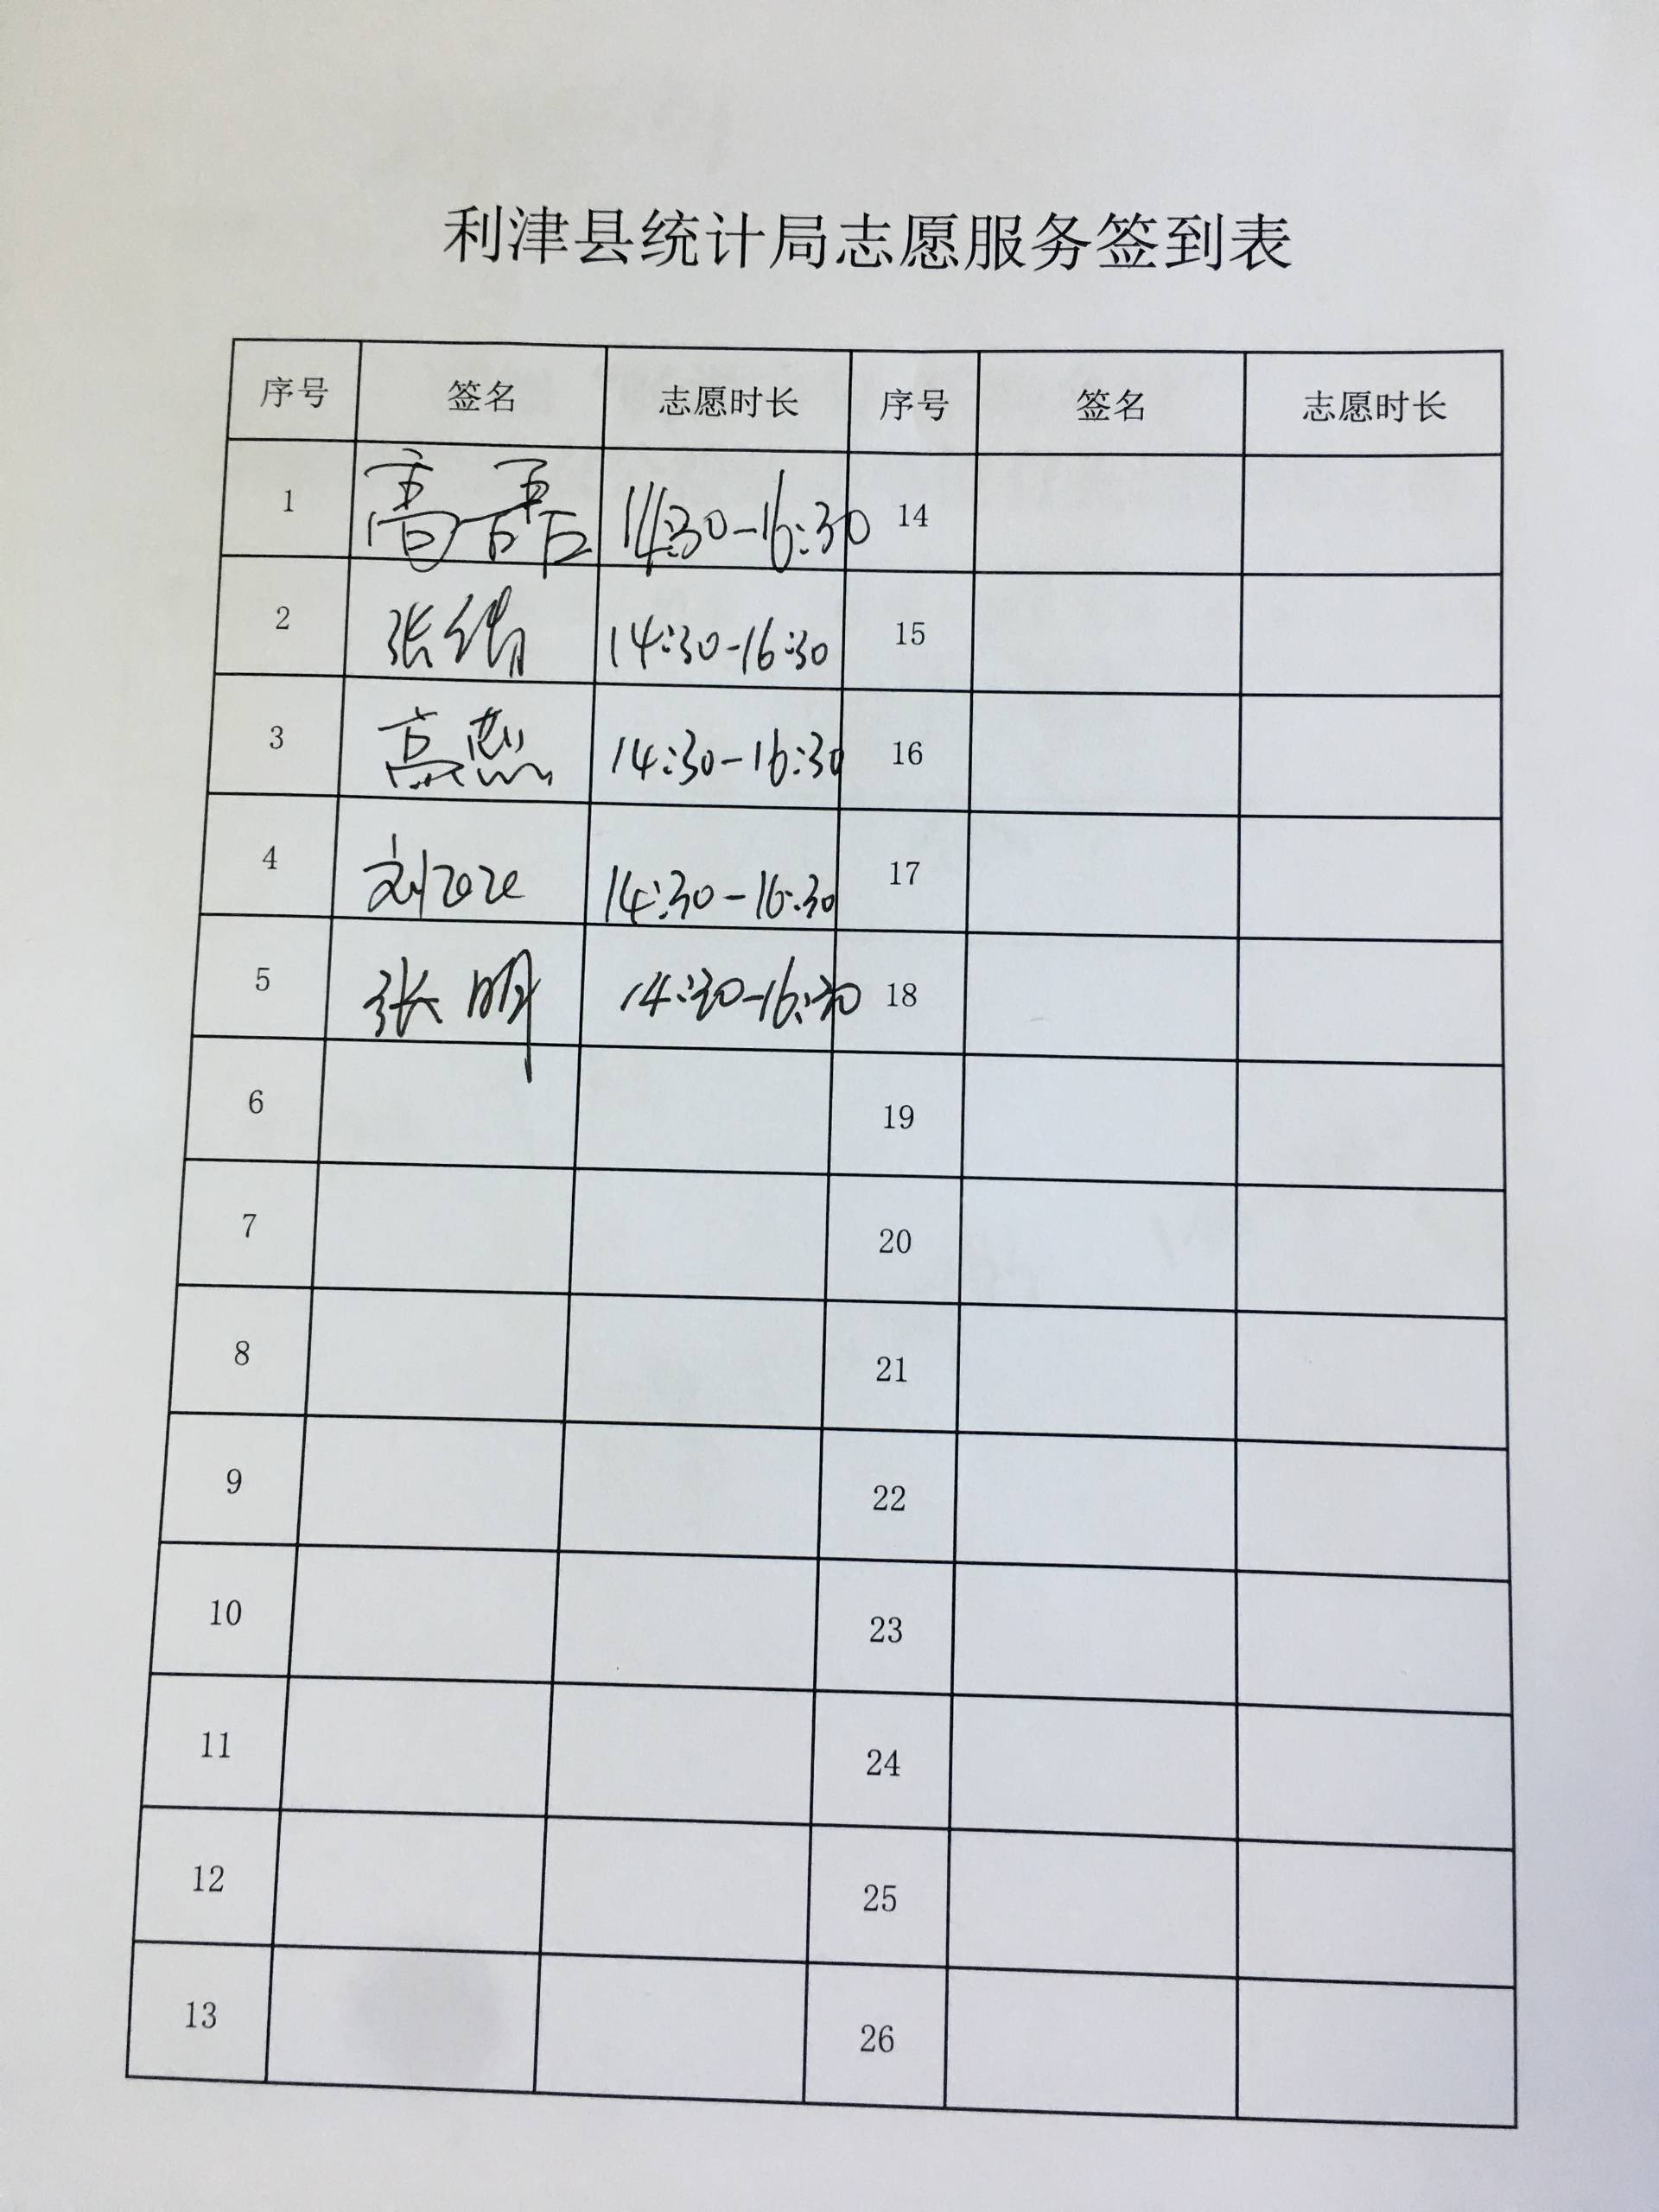 利津县统计局志愿服务签到表
序号 签名 志愿时长 序号 签名 志愿时长
1 高 14:30-16:30 14
2 张倩 14:30-16:30 15
3 高燕 14:30-16:30 16
4 刘 14:30-16:30 17
5 张明 14:30-16:30 18
6 19
7 20
8 21
9 22
10 23
11 24
12 25
13 26